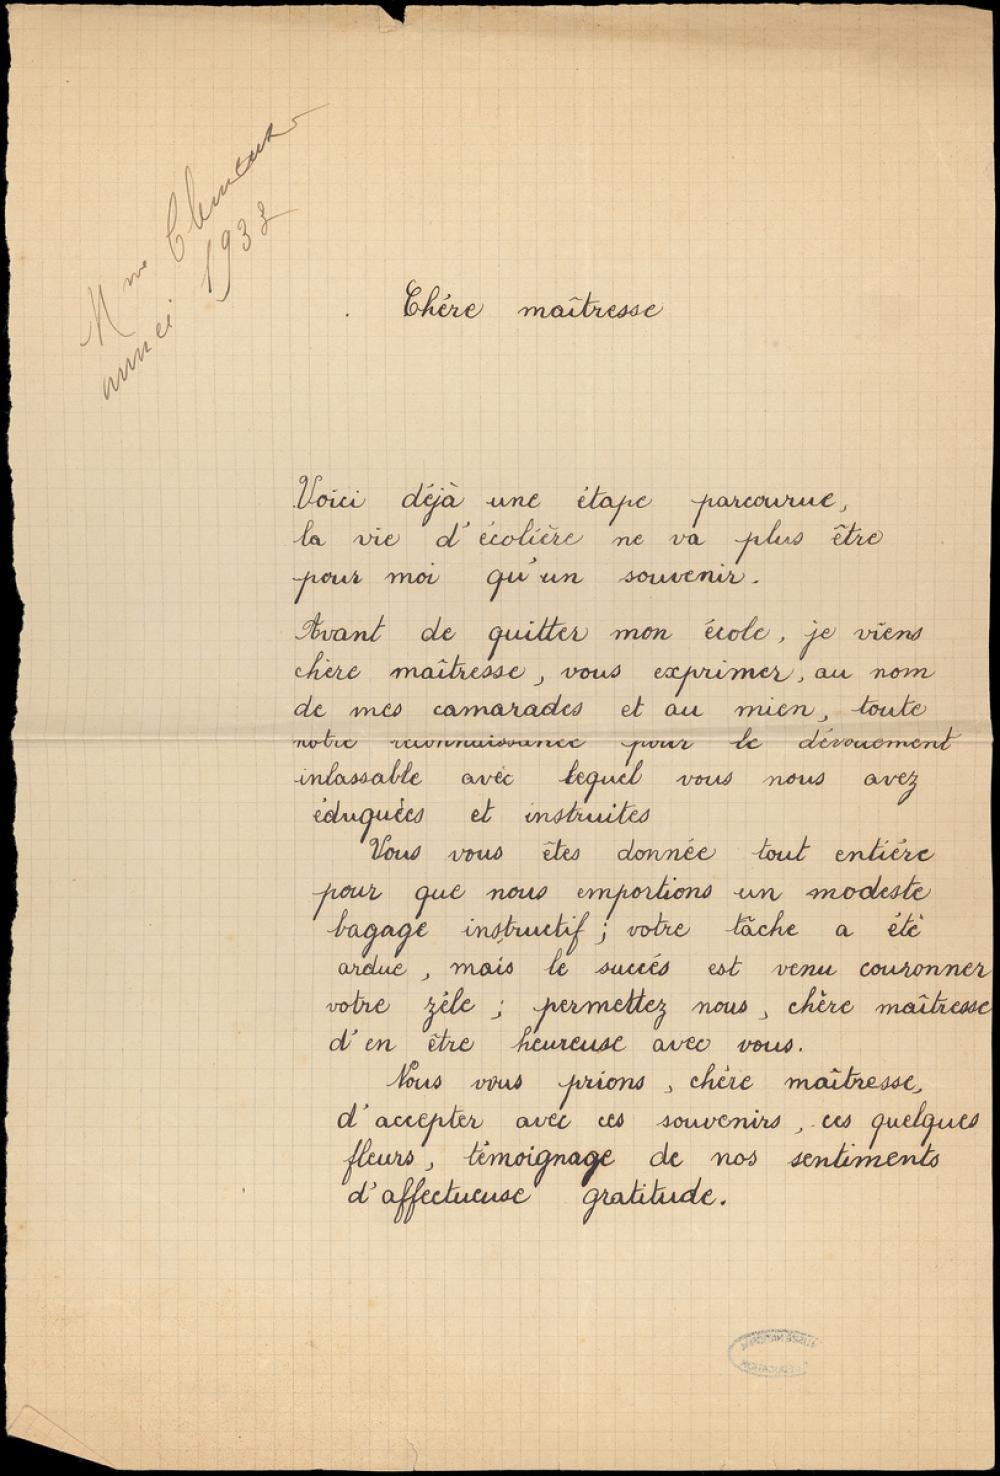 Mme
1933
Chére maîtresse
Voici déjà une étape parcourue,
la vie d'écolière ne va plus être
pour moi qu'un souvenir.
Avant de quitter mon école, je viens
chère maîtresse, vous exprimer, au nom
de mes camarades et au mien, toute
notre reconnaissance pour le dévouement
inlassable avec lequel vous nous avez
éduquées et instruites
Vous vous êtes donnée tout entiére
pour que nous emportions un modeste
bagage instructif ; votre tâche a été
ardue, mais le succés est venu couronner
votre zéle ; permettez nous, chère maîtresse
d'en être heureuse avec vous.
Nous vous prions, chére maîtresse,
d'accepter avec ces souvenirs, ces quelques
fleurs, témoignage de nos sentiments
d'affectueuse gratitude.